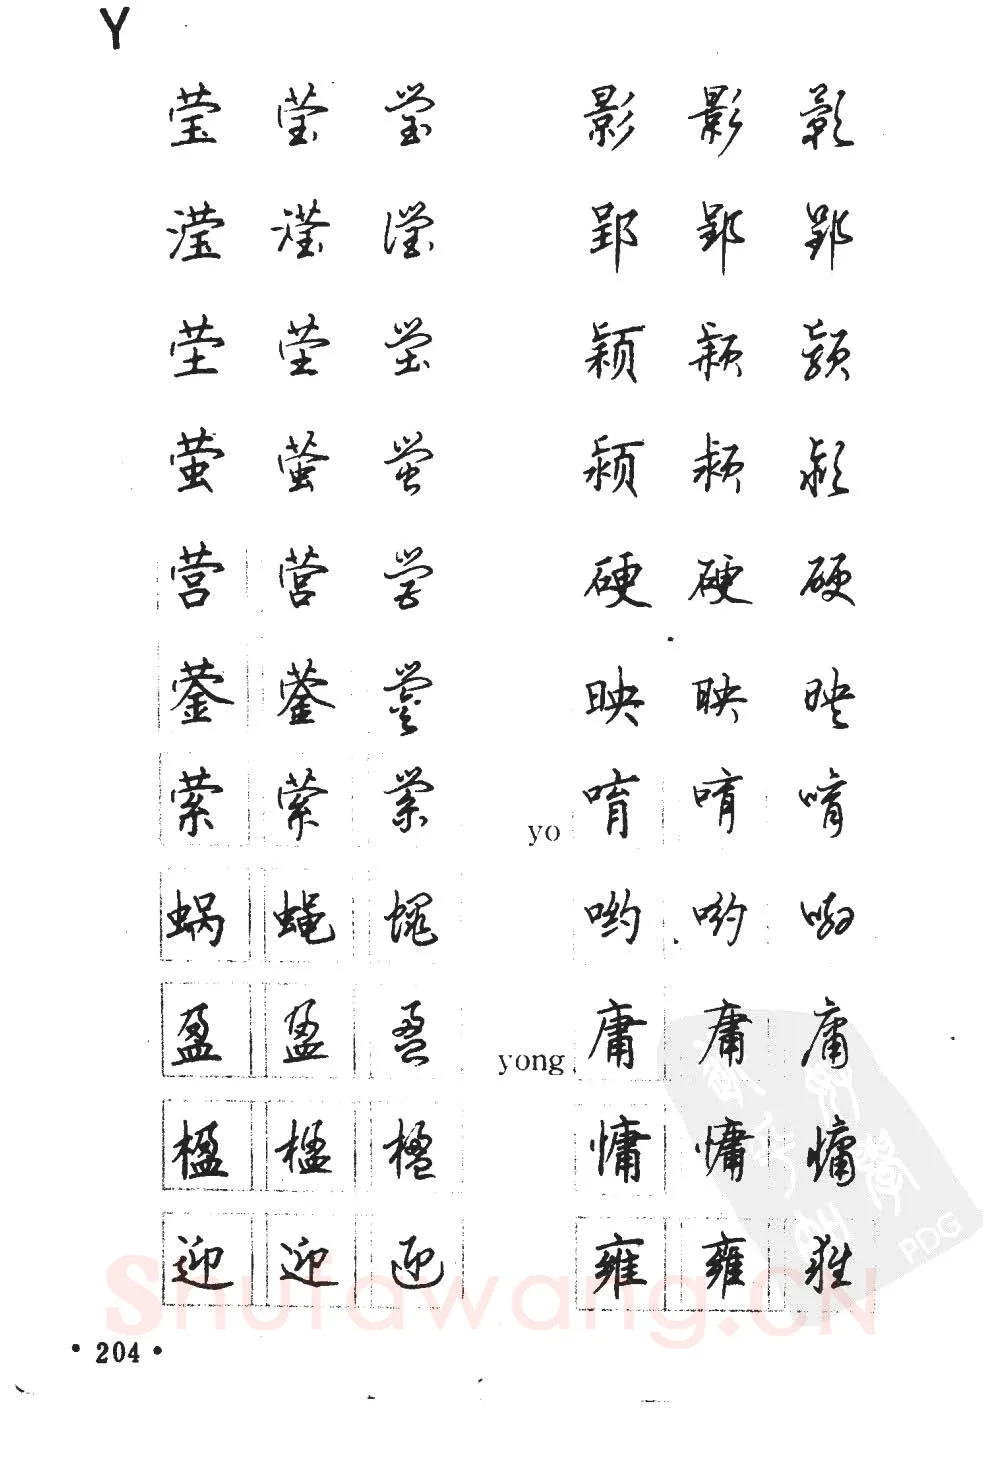 Y
莹 莹 莹
滢 滢 滢
茔 茔 茔
萤 萤 萤
营 营 营
蓥 蓥 蓥
萦 萦 萦
蜗 蝇 蝇
盈 盈 盈
楹 楹 楹
迎 迎 迎
影 影 影
郢 郢 郢
颖 颖 颖
颍 颍 颍
硬 硬 硬
映 映 映
yo 唷 唷 唷
哟 哟 哟
yong 庸 庸 庸
慵 慵 慵
雍 雍 雍
PDG
Shufawang.CN
·204·